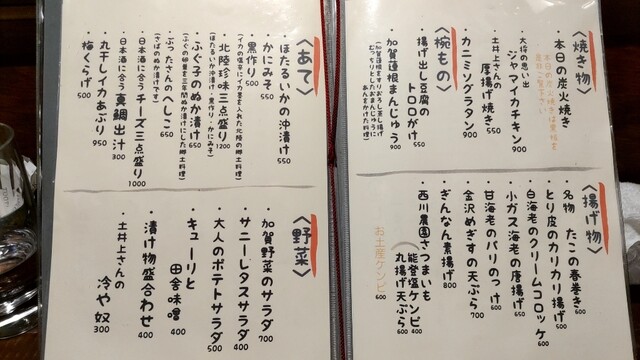 〈焼き物〉
・本日の炭火焼き
・大将の思い出
ジャマイカチキン 900
・土井上さんの
厚揚げ焼き 550
・カニミソグラタン 900
〈椀もの〉
・揚げ出し豆腐の
トロロがけ 550
・加賀蓮根まんじゅう 900
(加賀蓮根をすりおろし蒸し揚げ
むっちりとしたおまんじゅうに
あんをかけた料理)
〈揚げ物〉
・名物 たこの春巻き 600
・とり皮のカリカリ揚げ 500
・白海老のクリームコロッケ 600
・小ガス海老の唐揚げ 650
・甘海老のバリのっけ 600
・金沢めぎすの天ぷら 700
・ぎんなん素揚げ 800
・西川農園さつまいも
能登塩ケンピ 400
丸揚げ天ぷら 600
お土産ケンピ 600
〈あて〉
・ほたるいかの沖漬け 550
・かにみそ 550
・黒作り 500
(イカの塩辛にイカ墨を入れた北陸の郷土料理)
・北陸珍味三点盛り 1200
(ほたるいか沖漬け・黒作り・かにみそ)
・ふぐ子のぬか漬け 650
(ふぐの卵巣を三年間ぬか漬けにした郷土料理)
・ぶったさんのへしこ 650
(さばのぬか漬けです)
・日本酒に合うチーズ三点盛り 1000
・日本酒に合う真鯛出汁 300
・丸干しイカあぶり 950
・梅くらげ 500
〈野菜〉
・加賀野菜のサラダ 700
・サニーレタスサラダ 400
・大人のポテトサラダ 500
・キューリと
田舎味噌 400
・漬け物盛合わせ 400
・土井上さんの
冷や奴 300